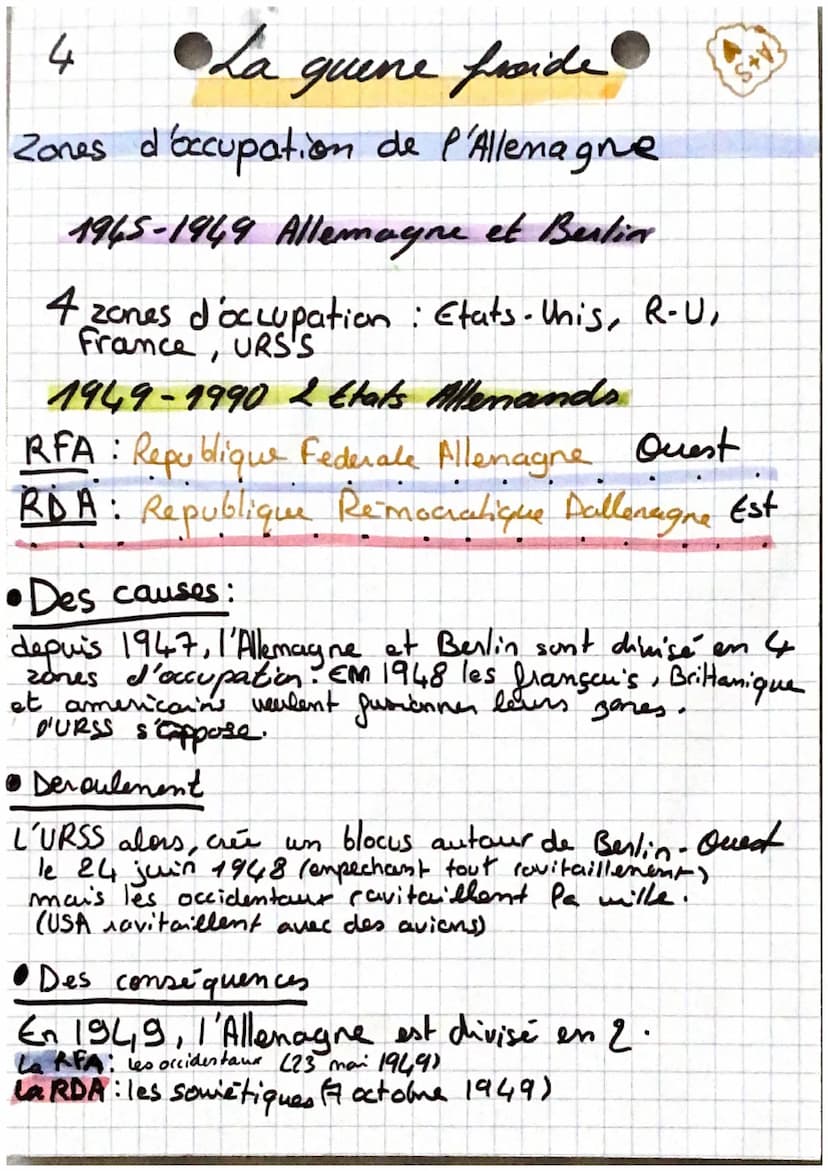 4
La guerre froide
A+S
Zones d'occupation de l'Allemagne
1945-1949 Allemagne et Berlin
4 zones d'occupation : Etats-Unis, R-U,
France, URSS
1949-1990 2 Etats Allemands
RFA : Republique Federale Allemagne Ouest
RDA : Republique Rémocratique Dallemagne Est
• Des causes :
depuis 1947, l'Allemagne et Berlin sont divisé en 4
zones d'occupation. EM 1948 les français, Brittanique
et americains veulent fusionner leurs zones.
l'URSS s'oppose.
• Deroulement
L'URSS alors, crée un blocus autour de Berlin-Ouest
le 24 juin 1948 (empechant tout ravitaillement)
mais les occidentaux ravitaillent la ville.
(USA ravitaillent avec des avions)
• Des conséquences
En 1949, l'Allemagne est divisé en 2.
La RFA : les occidentaux (23 mai 1949)
La RDA : les soviétiques (7 octobre 1949)